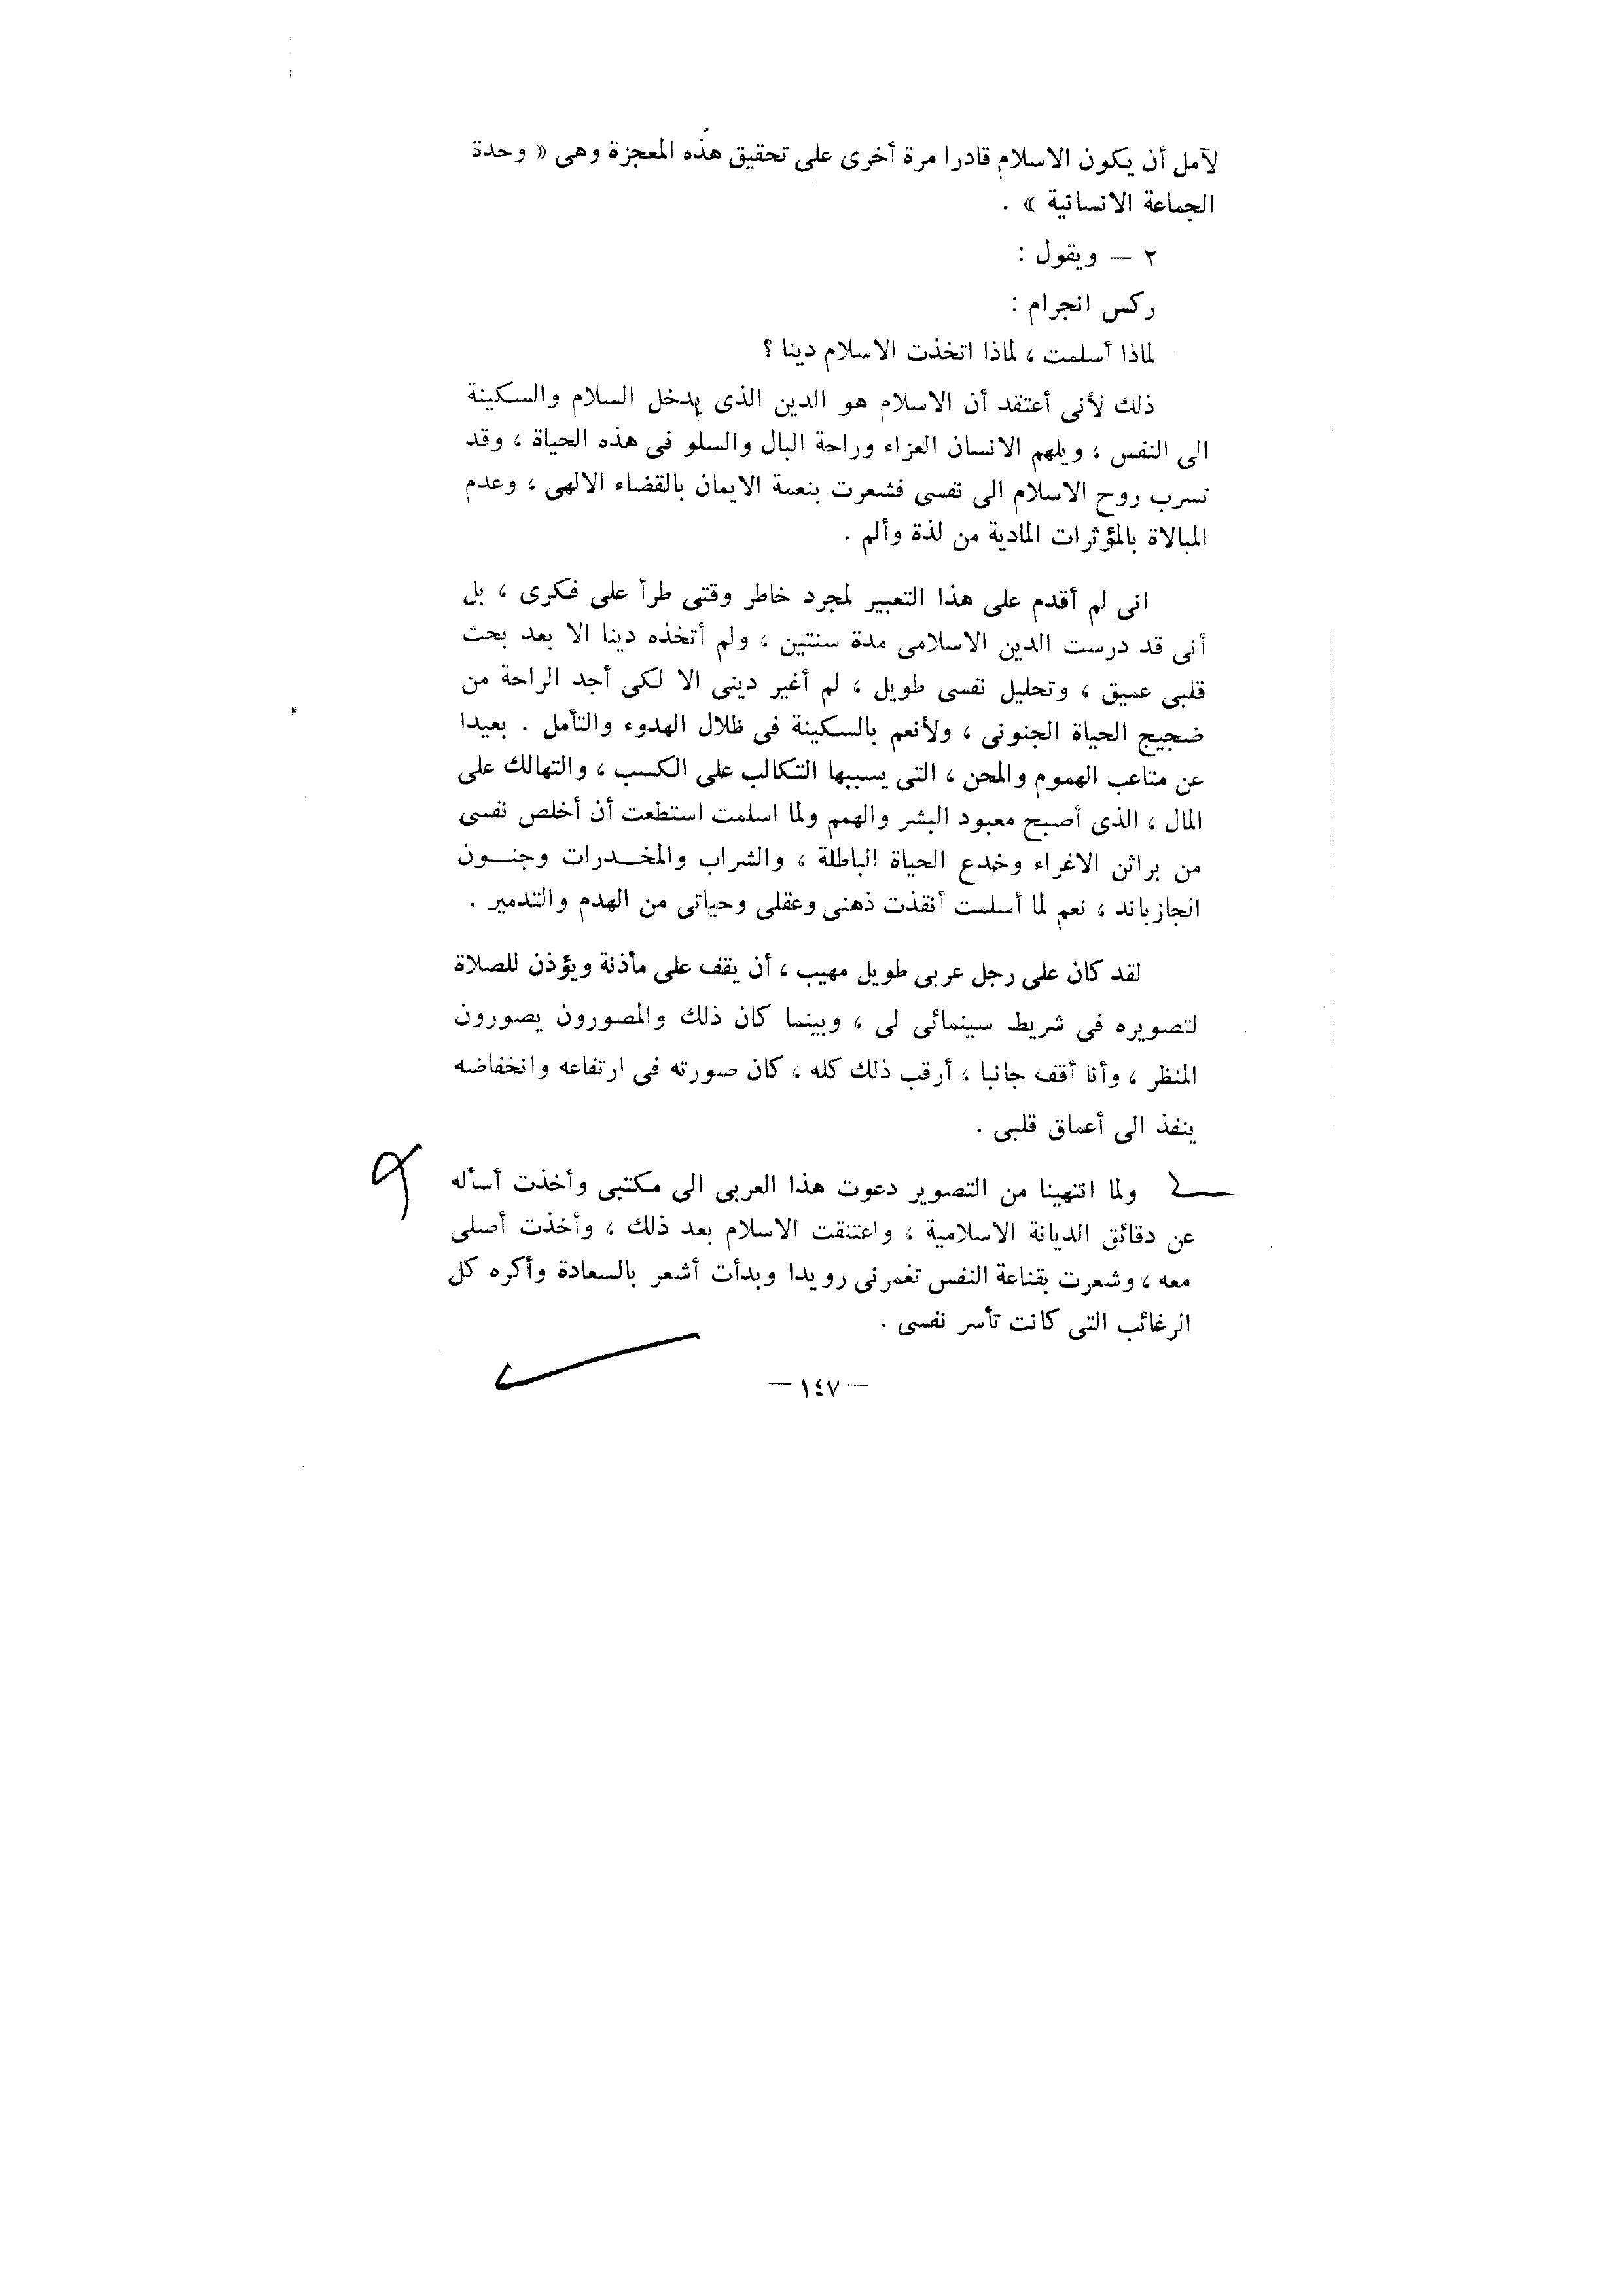 لآمل أن يكون الاسلام قادرا مرة أخرى على تحقيق هذه المعجزة وهى « وحدة
الجماعة الانسانية » .
٢ — ويقول :
ركس انجرام :
لماذا أسلمت ، لماذا اتخذت الاسلام دينا ؟
ذلك لأنى أعتقد أن الاسلام هو الدين الذى يدخل السلام والسكينة
الى النفس ، ويلهم الانسان العزاء وراحة البال والسلو فى هذه الحياة ، وقد
تسرب روح الاسلام الى نفسى فشعرت بنعمة الايمان بالقضاء الالهى ، وعدم
المبالاة بالمؤثرات المادية من لذة وألم .
انى لم أقدم على هذا التعبير لمجرد خاطر وقتى طرأ على فكرى ، بل
أنى قد درست الدين الاسلامى مدة سنتين ، ولم أتخذه دينا الا بعد بحث
قلبى عميق ، وتحليل نفسى طويل ، لم أغير دينى الا لكى أجد الراحة من
ضجيج الحياة الجنونى ، ولأنعم بالسكينة فى ظلال الهدوء والتأمل . بعيدا
عن متاعب الهموم والمحن ، التى يسببها التكالب على الكسب ، والتهالك على
المال ، الذى أصبح معبود البشر والهمم ولما اسلمت استطعت أن أخلص نفسى
من براثن الاغراء وخدع الحياة الباطلة ، والشراب والمخدرات وجنون
انجازباند ، نعم لما أسلمت أنقذت ذهنى وعقلى وحياتى من الهدم والتدمير .
لقد كان على رجل عربى طويل مهيب ، أن يقف على مأذنة ويؤذن للصلاة
لتصويره فى شريط سينمائى لى ، وبينما كان ذلك والمصورون يصورون
المنظر ، وأنا أقف جانبا ، أرقب ذلك كله ، كان صورته فى ارتفاعه وانخفاضه
ينفذ الى أعماق قلبى .
ولما انتهينا من التصوير دعوت هذا العربى الى مكتبى وأخذت أسأله
عن دقائق الديانة الاسلامية ، واعتنقت الاسلام بعد ذلك ، وأخذت أصلى
معه ، وشعرت بقناعة النفس تغمرنى رويدا وبدأت أشعر بالسعادة وأكره كل
الرغائب التى كانت تأسر نفسى .
— ١٤٧ —